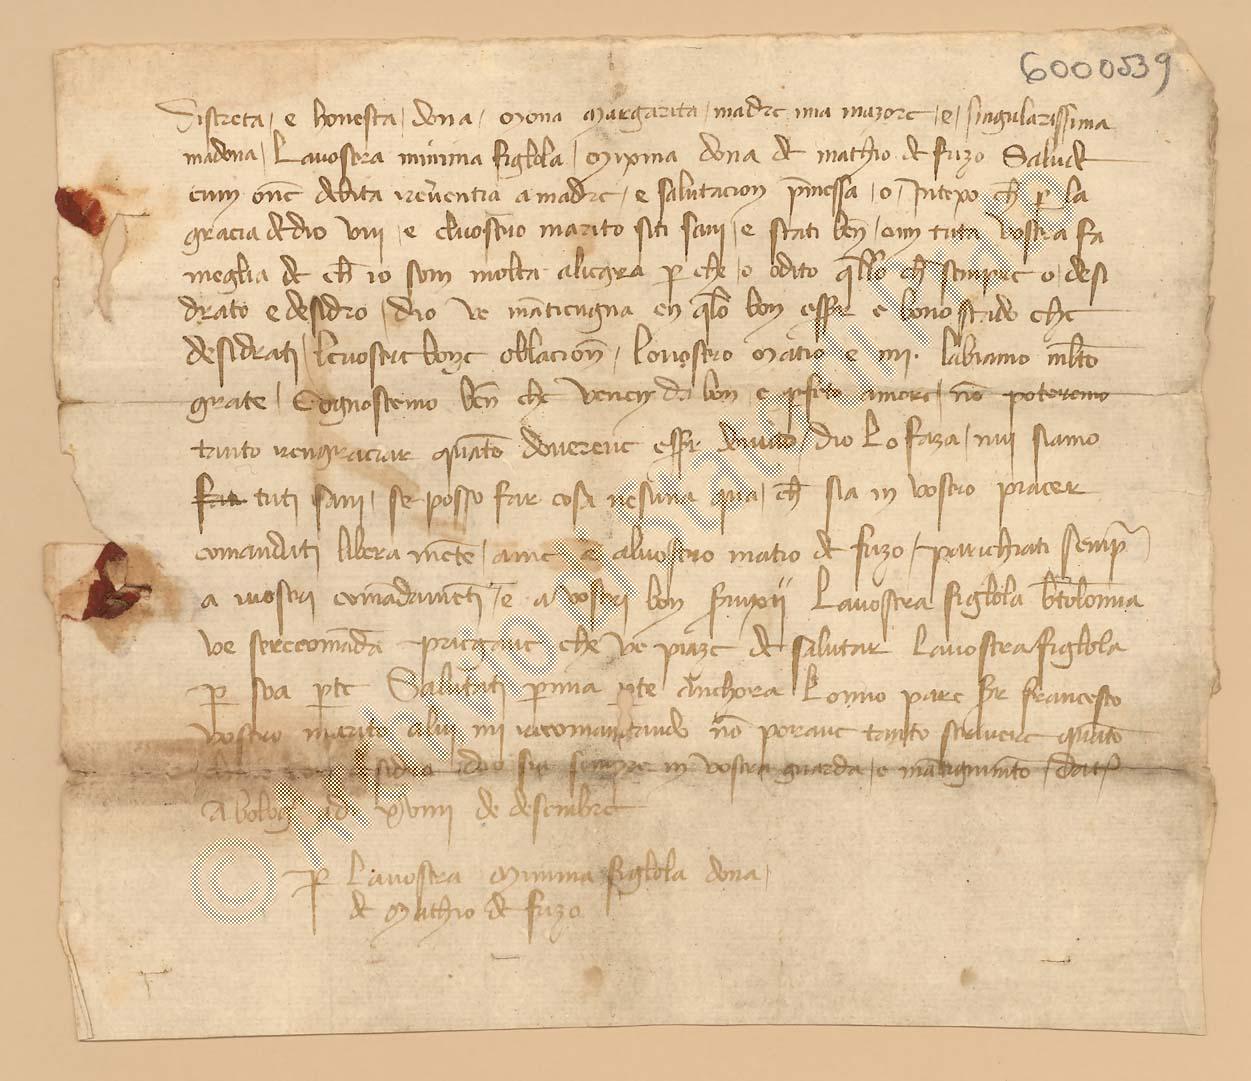 6000539
Discreta e honesta dona Mona Margarita madre mia mazore e singularissima
madona Lavostra minima figlola Mixina dona de mathio de fuzo Salude
cum one debita reverentia a madre e salutacion pmessa o Intexo ch p la
gracia de dio vui e elvostro marito siti sani e stati ben cum tuta vostra fa
meglia de ch io sum molta aliegra p che o odito qllo ch sempre o desi
drato e desidro dio ve mantiegna en qlo bon esser e bono stado che
desidrati Levostre bone oblacion lovostro Matio e mi labiamo mlto
grate Cognoscemo ben che venen da bon e pfeto amore no poteremo
tanto rengraciar quato doverene esser devudo dio Lo faza nui siamo
tuti sani se posso far cosa nesuna qua ch sia in vostro piacer
comandati libera mete a me e alvostro matio de fuzo parichiati semp
a vostri comadameti e a vostri bon Lavostra figlola btolomia
ve serecomada pregove che ve piaze de salutar Lavostra figlola
p sua pte Salutati p mia pte Anchora Lomio pare Sr francesco
vostro marito a lui mi recomandando no porave tanto scrivere quato
dio sia sempre in vostra guarda e matignimeto Dat
A bolog adi xviiii de desembre
P Lavostra Minima figlola dona
de Mathio de fuzo
© Archivio di Stato di Prato